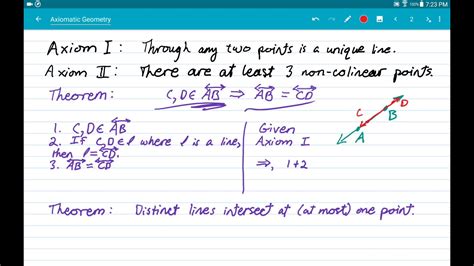 100% 7:23 PM
Axiomatic Geometry
2
Axiom I : Through any two points is a unique line.
Axiom II : There are at least 3 non-colinear points.
Theorem: C, D ∈ AB ⇒ AB = CD
1. C, D ∈ AB Given
2. If C, D ∈ l where l is a line, Axiom I
then l = CD.
3. AB = CD ⇒, 1+2
C D
B
A
Theorem: Distinct lines intersect at (at most) one point.